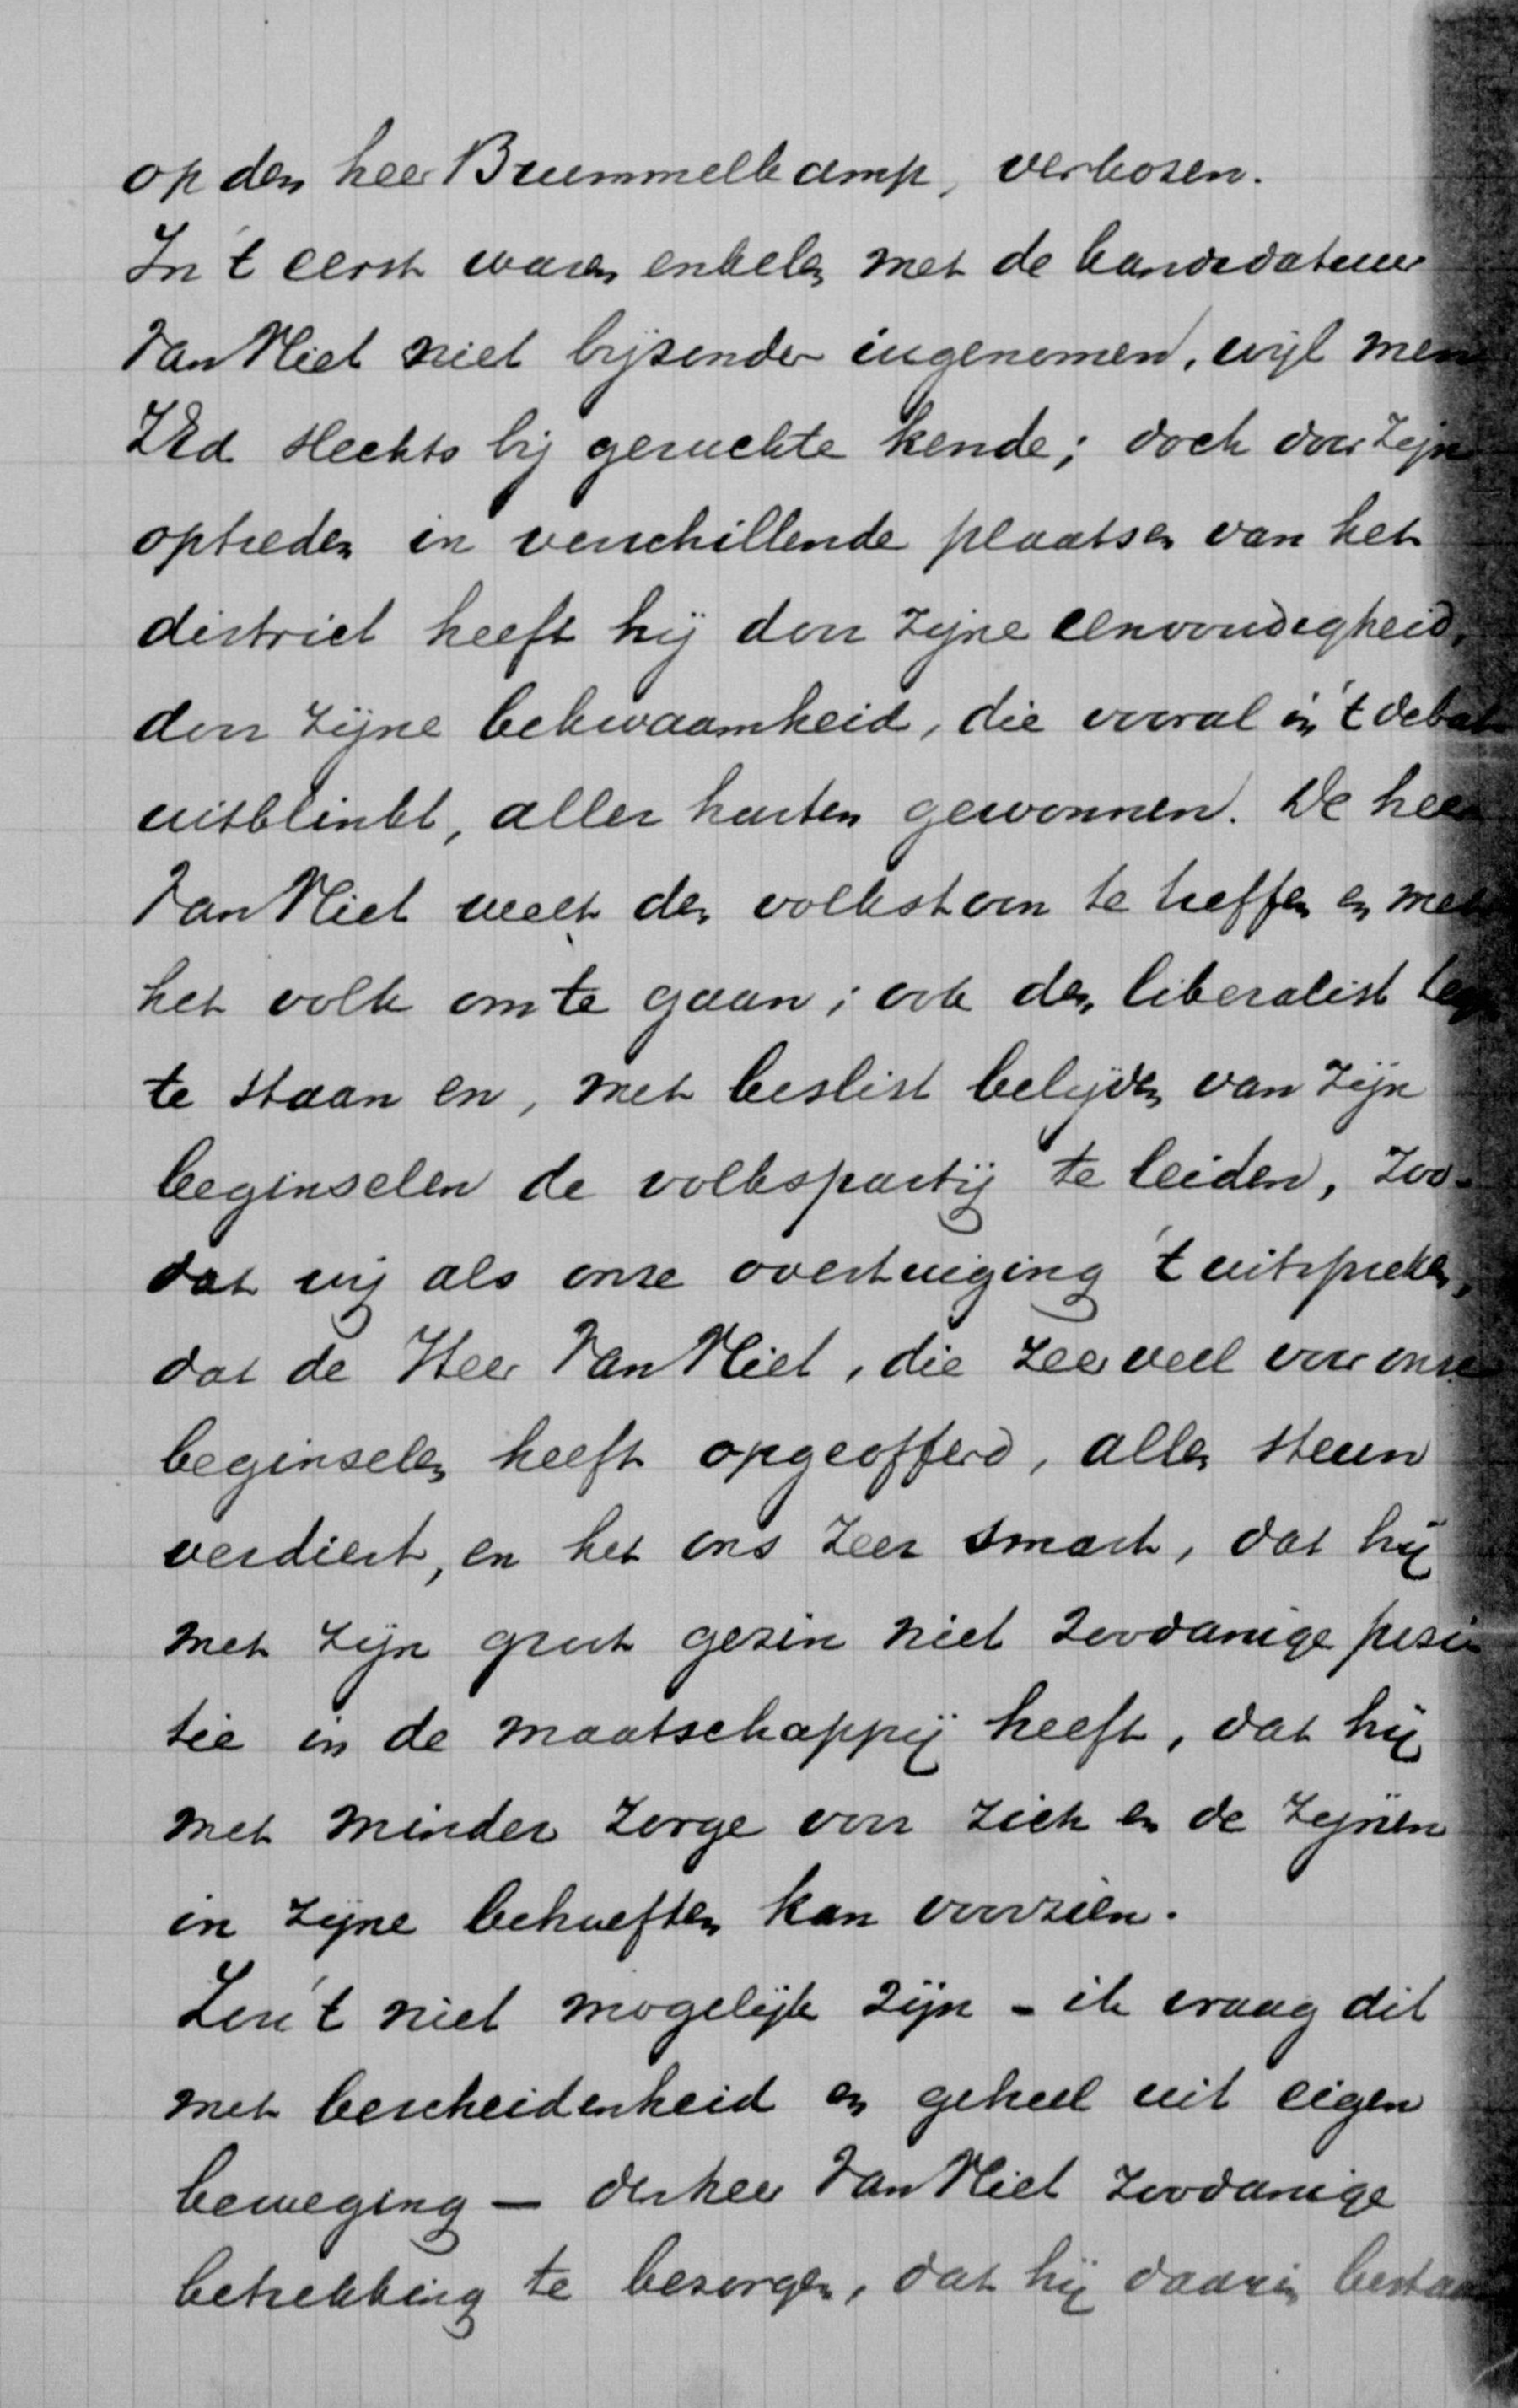 op den heer Brummelkamp, verkozen.
In 't eerst waren enkelen met de kandidatuur
Van Vliet niet bijzonder ingenomen, wijl men
ZEd slechts bij geruchte kende; doch door zijn
optreden in verschillende plaatsen van het
district heeft hij door zijne eenvoudigheid,
door zijne bekwaamheid, die vooral in 't debat
uitblinkt, aller harten gewonnen. De heer
Van Vliet weet den volkstoon te treffen en met
het volk om te gaan; ook den liberalist tegen
te staan en, met beslist belijden van zijn
beginselen de volkspartij te leiden, zoo-
dat wij als onze overtuiging 't uitspreken,
dat de Heer Van Vliet, die zeer veel voor onze
beginselen heeft opgeofferd, allen steun
verdient, en het ons zeer smart, dat hij
met zijn groot gezin niet zoodanige posi-
tie in de maatschappij heeft, dat hij
met minder zorge voor zich en de zijnen
in zijne behoeften kan voorzien.
Zou 't niet mogelijk zijn - ik vraag dit
met bescheidenheid en geheel uit eigen
beweging - den heer Van Vliet zoodanige
betrekking te bezorgen, dat hij daarin bestaan